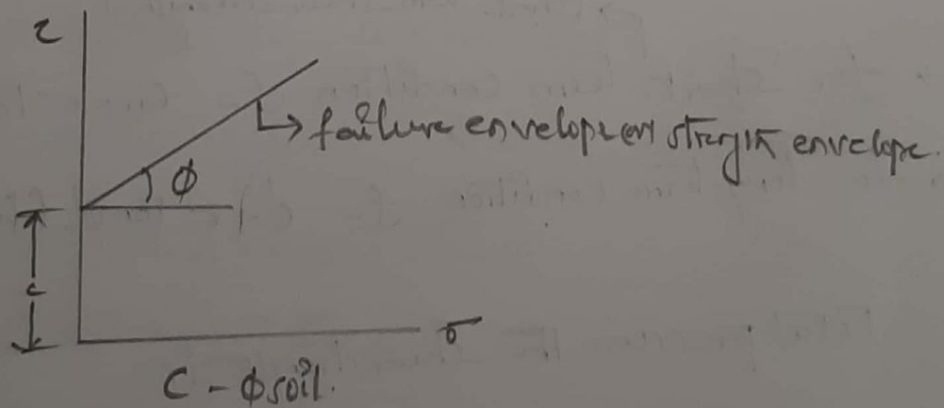 τ
→ failure envelope or strength envelope.
φ
c
σ
C - φ soil.